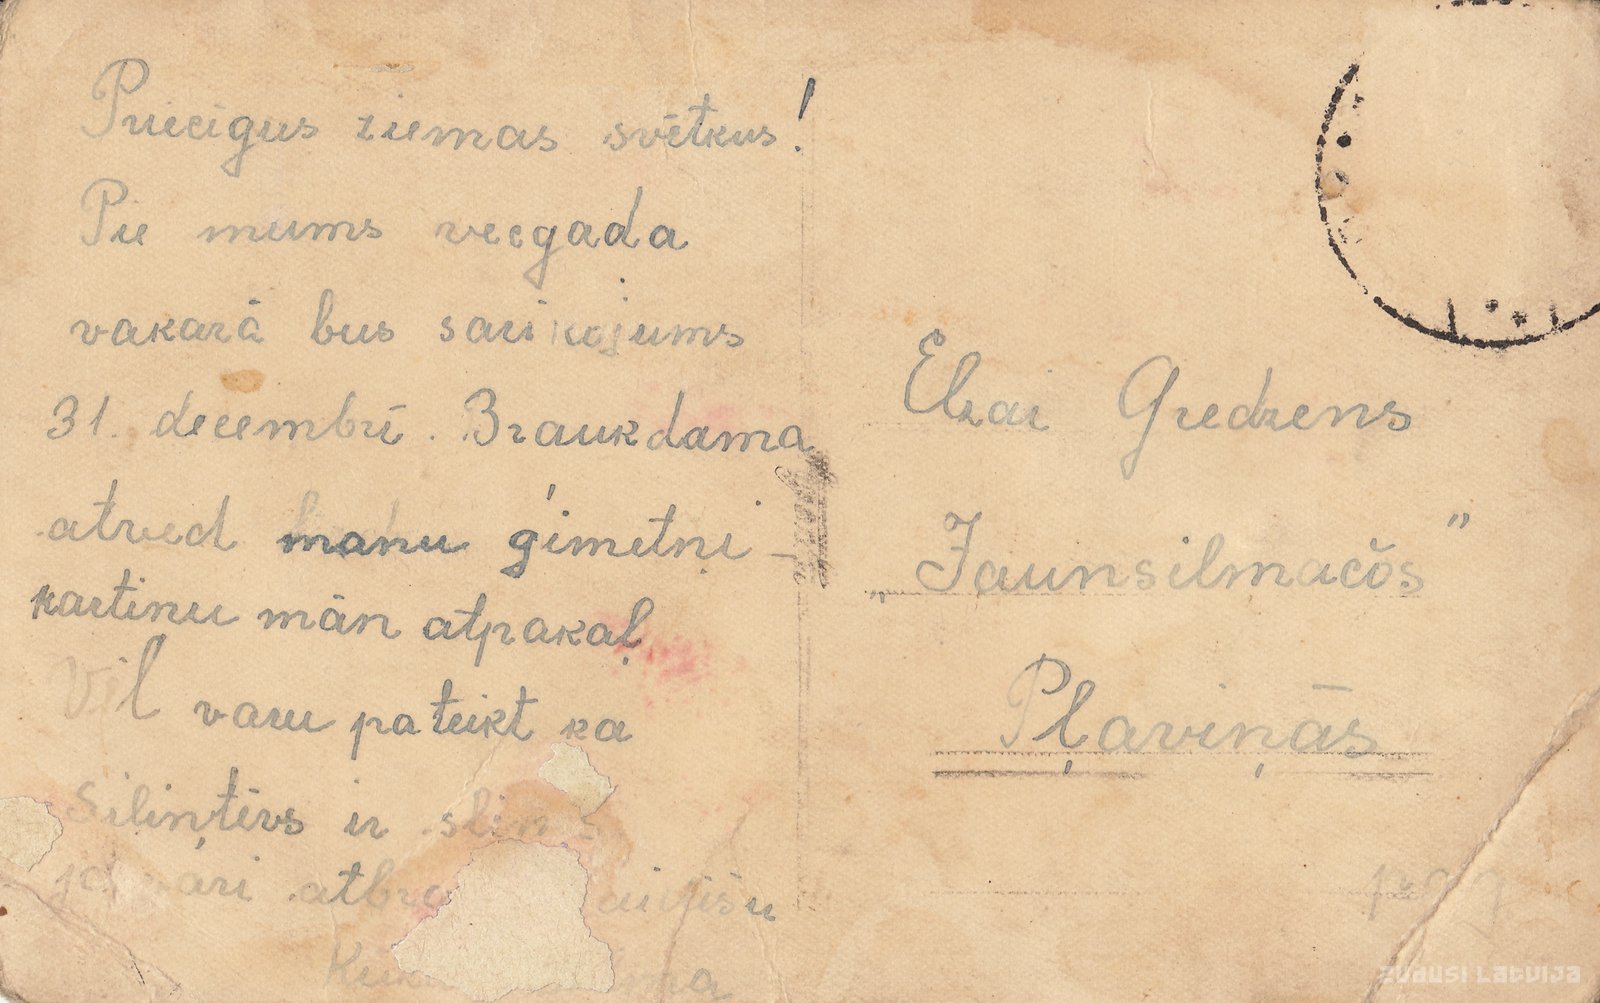 Priecīgus ziemas svētkus!
Pie mums vecgada
vakarā bus sarikojums
31. decembrī. Braukdama
atved manu ģimetņi-
kartinu mān atpakaļ
Vēl varu pateikt ka
Siliņtēvs ir slims
Elzai Gredzens
„Jaunsilmačōs"
Pļaviņās
zudusi Latvija